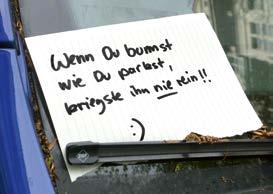 Wenn Du bumst
wie Du parkst,
kriegste ihn nie rein!!
:)